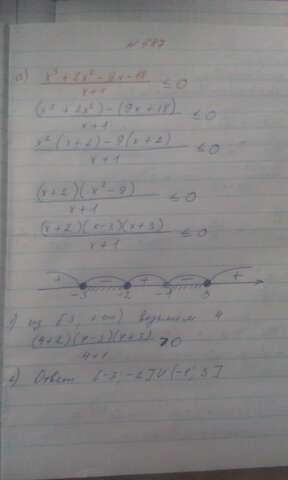 N 587
а) x³ + 2x² - 9x - 18 / x+1 ≤ 0
(x³ + 2x²) - (9x + 18) / x+1 ≤ 0
x²(x+2) - 9(x+2) / x+1 ≤ 0
(x+2)(x² - 9) / x+1 ≤ 0
(x+2)(x-3)(x+3) / x+1 ≤ 0
+ - + - +
-3 -2 -1 3
1) из [3, +∞) возьмем 4
(4+2)(4-3)(4+3) / 4+1 >0
2) Ответ [-3, -2] U (-1, 3]